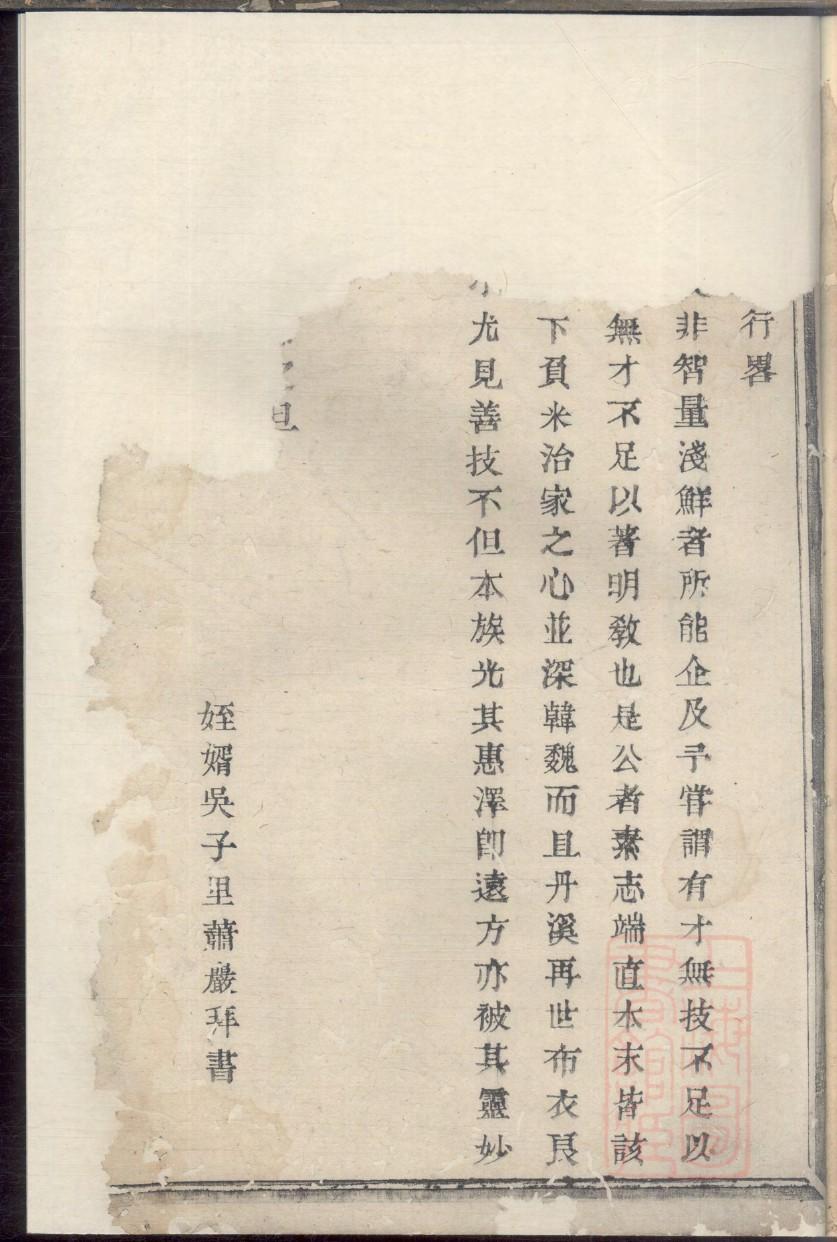 行畧
非智量淺鮮者所能企及予甞謂有才無技不足以
無才不足以著明敎也是公者素志端直本末皆該
下負米治家之心並深韓魏而且丹溪再世布衣良
尤見善技不但本族光其惠澤卽遠方亦被其靈妙
旦
姪婿吳子里蕭嚴拜書